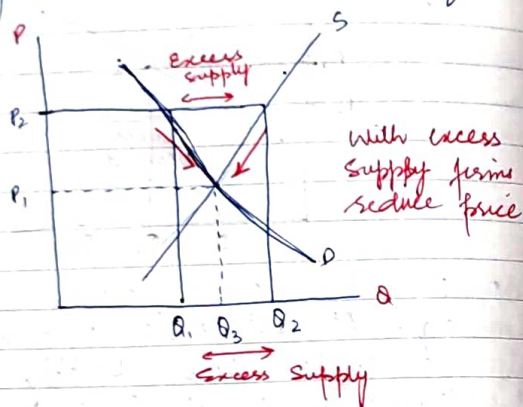 P
S
Excess
supply
P2
With excess
supply firms
reduce price
P1
D
Q
Q1 Q3 Q2
Excess Supply